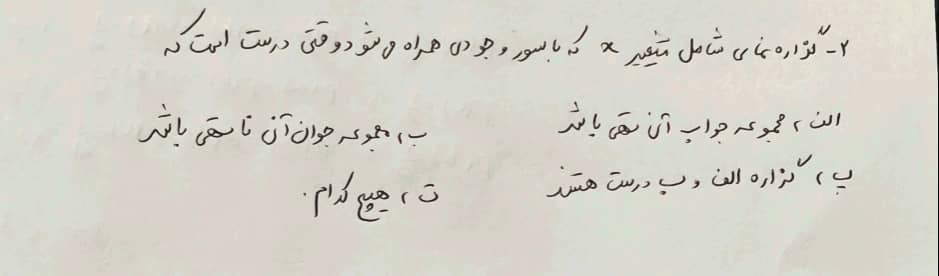 ۲- گزاره نمای شامل متغیر x که با سور وجودی همراه می‌شود وقتی درست است که
الف، مجموعه جواب آن تهی باشد ب، مجموعه جواب آن نا تهی باشد
پ، گزاره الف و ب درست هستند ت، هیچ کدام.